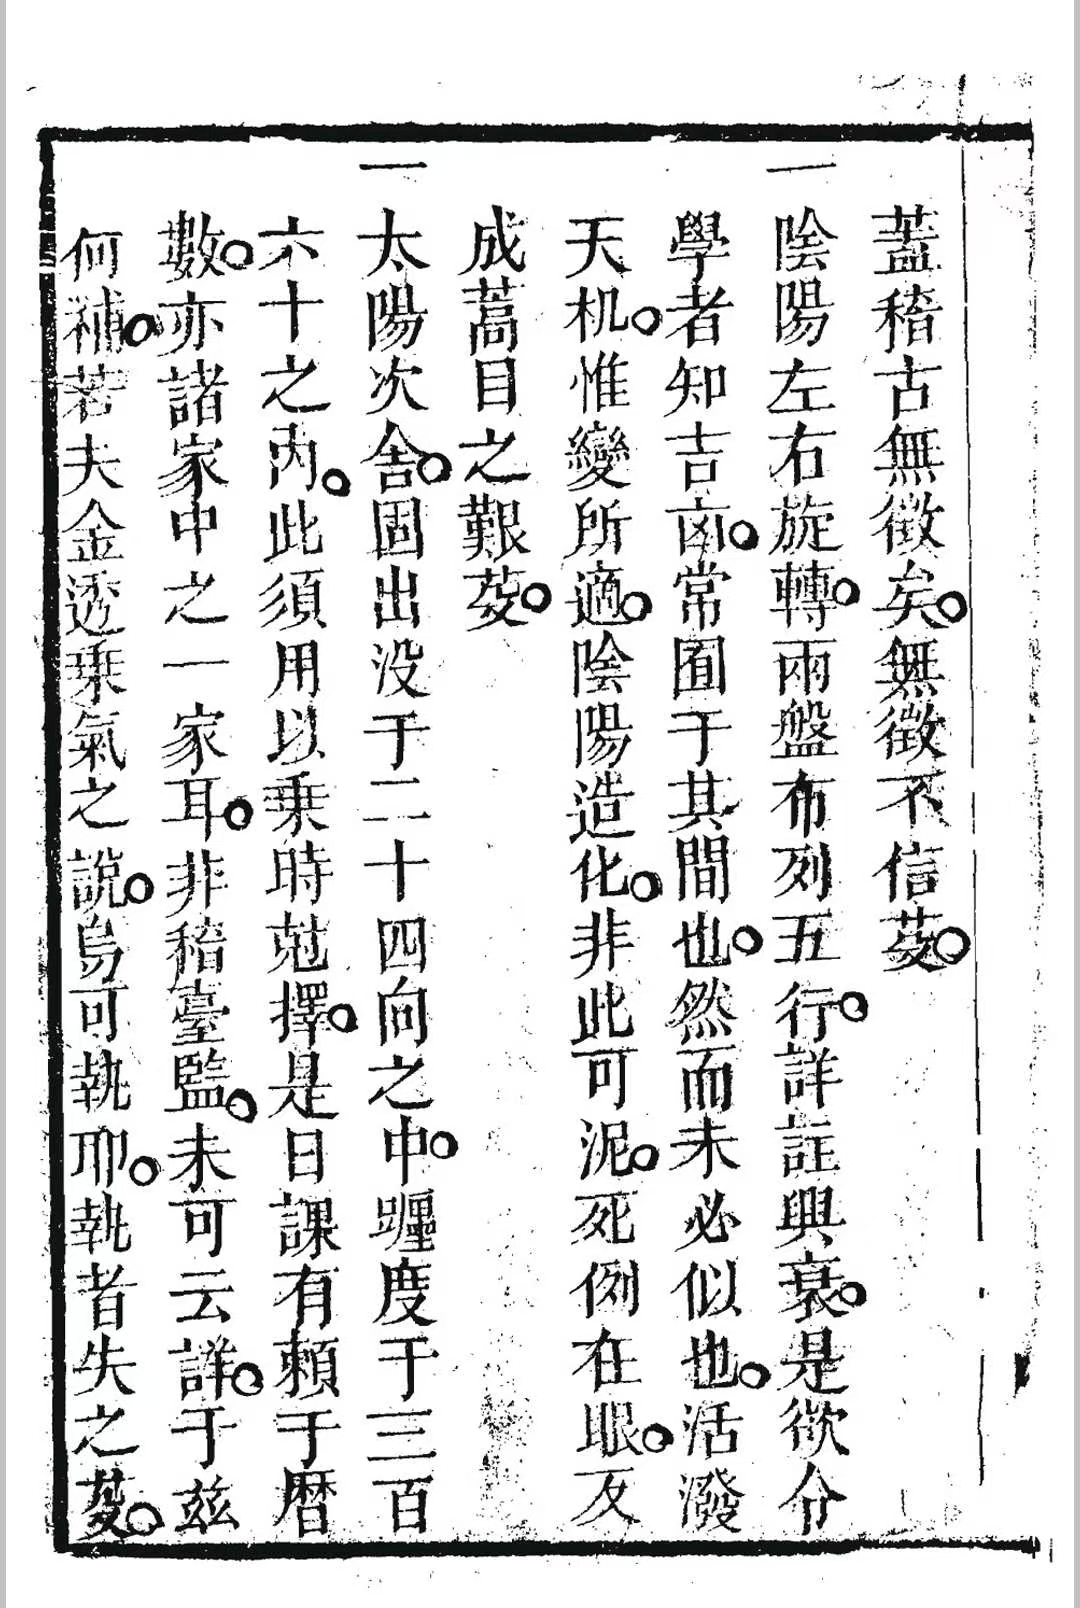 蓋稽古無徵矣。無徵不信茇。
一陰陽左右旋轉。兩盤布列五行。詳註興衰。是欲令
學者知吉凶。常囿于其間也。然而未必似也。活潑
天机。惟變所適。陰陽造化。非此可泥。死例在眼。反
成蒿目之艱茇。
一太陽次舍。固出没于二十四向之中。躔度于三百
六十之內。此須用以乘時尅擇。是日課有賴于曆
數。亦諸家中之一家耳。非稽臺監。未可云詳。于兹
何補。若夫金透乘氣之說。烏可執耶。執者失之茇。